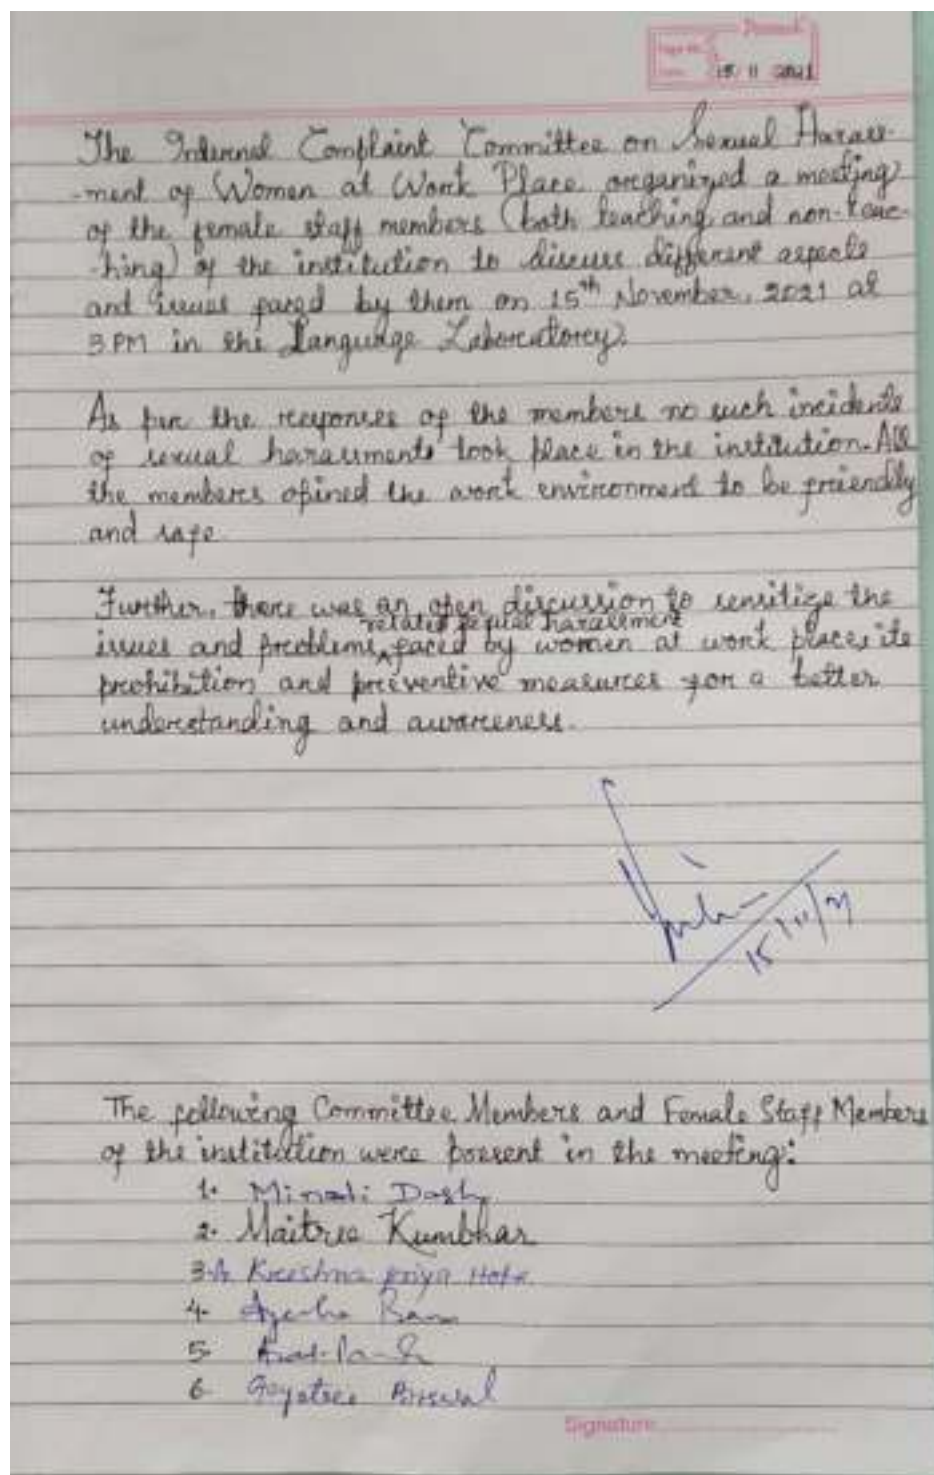 15 11 2021
The Internal Complaint Committee on Sexual Harass-
-ment of Women at Work Place organized a meeting
of the female staff members (both teaching and non-teac-
-hing) of the institution to discuss different aspects
and issues faced by them on 15th November, 2021 at
3 PM in the Language Laboratory.
As per the responses of the members no such incidents
of sexual harassments took place in the institution. All
the members opined the work environment to be friendly
and safe.
Further, there was an open discussion to sensitize the
related sexual harassment
issues and problems faced by women at work places its
prohibition and preventive measures for a better
understanding and awareness.
15/11/21
The following Committee Members and Female Staff Members
of the institution were present in the meeting:
1. Minati Dash
2. Maitree Kumbhar
3. Kreeshna priya Hota
4. Ayesha
5.
6. Gayatree Biswal
Signature